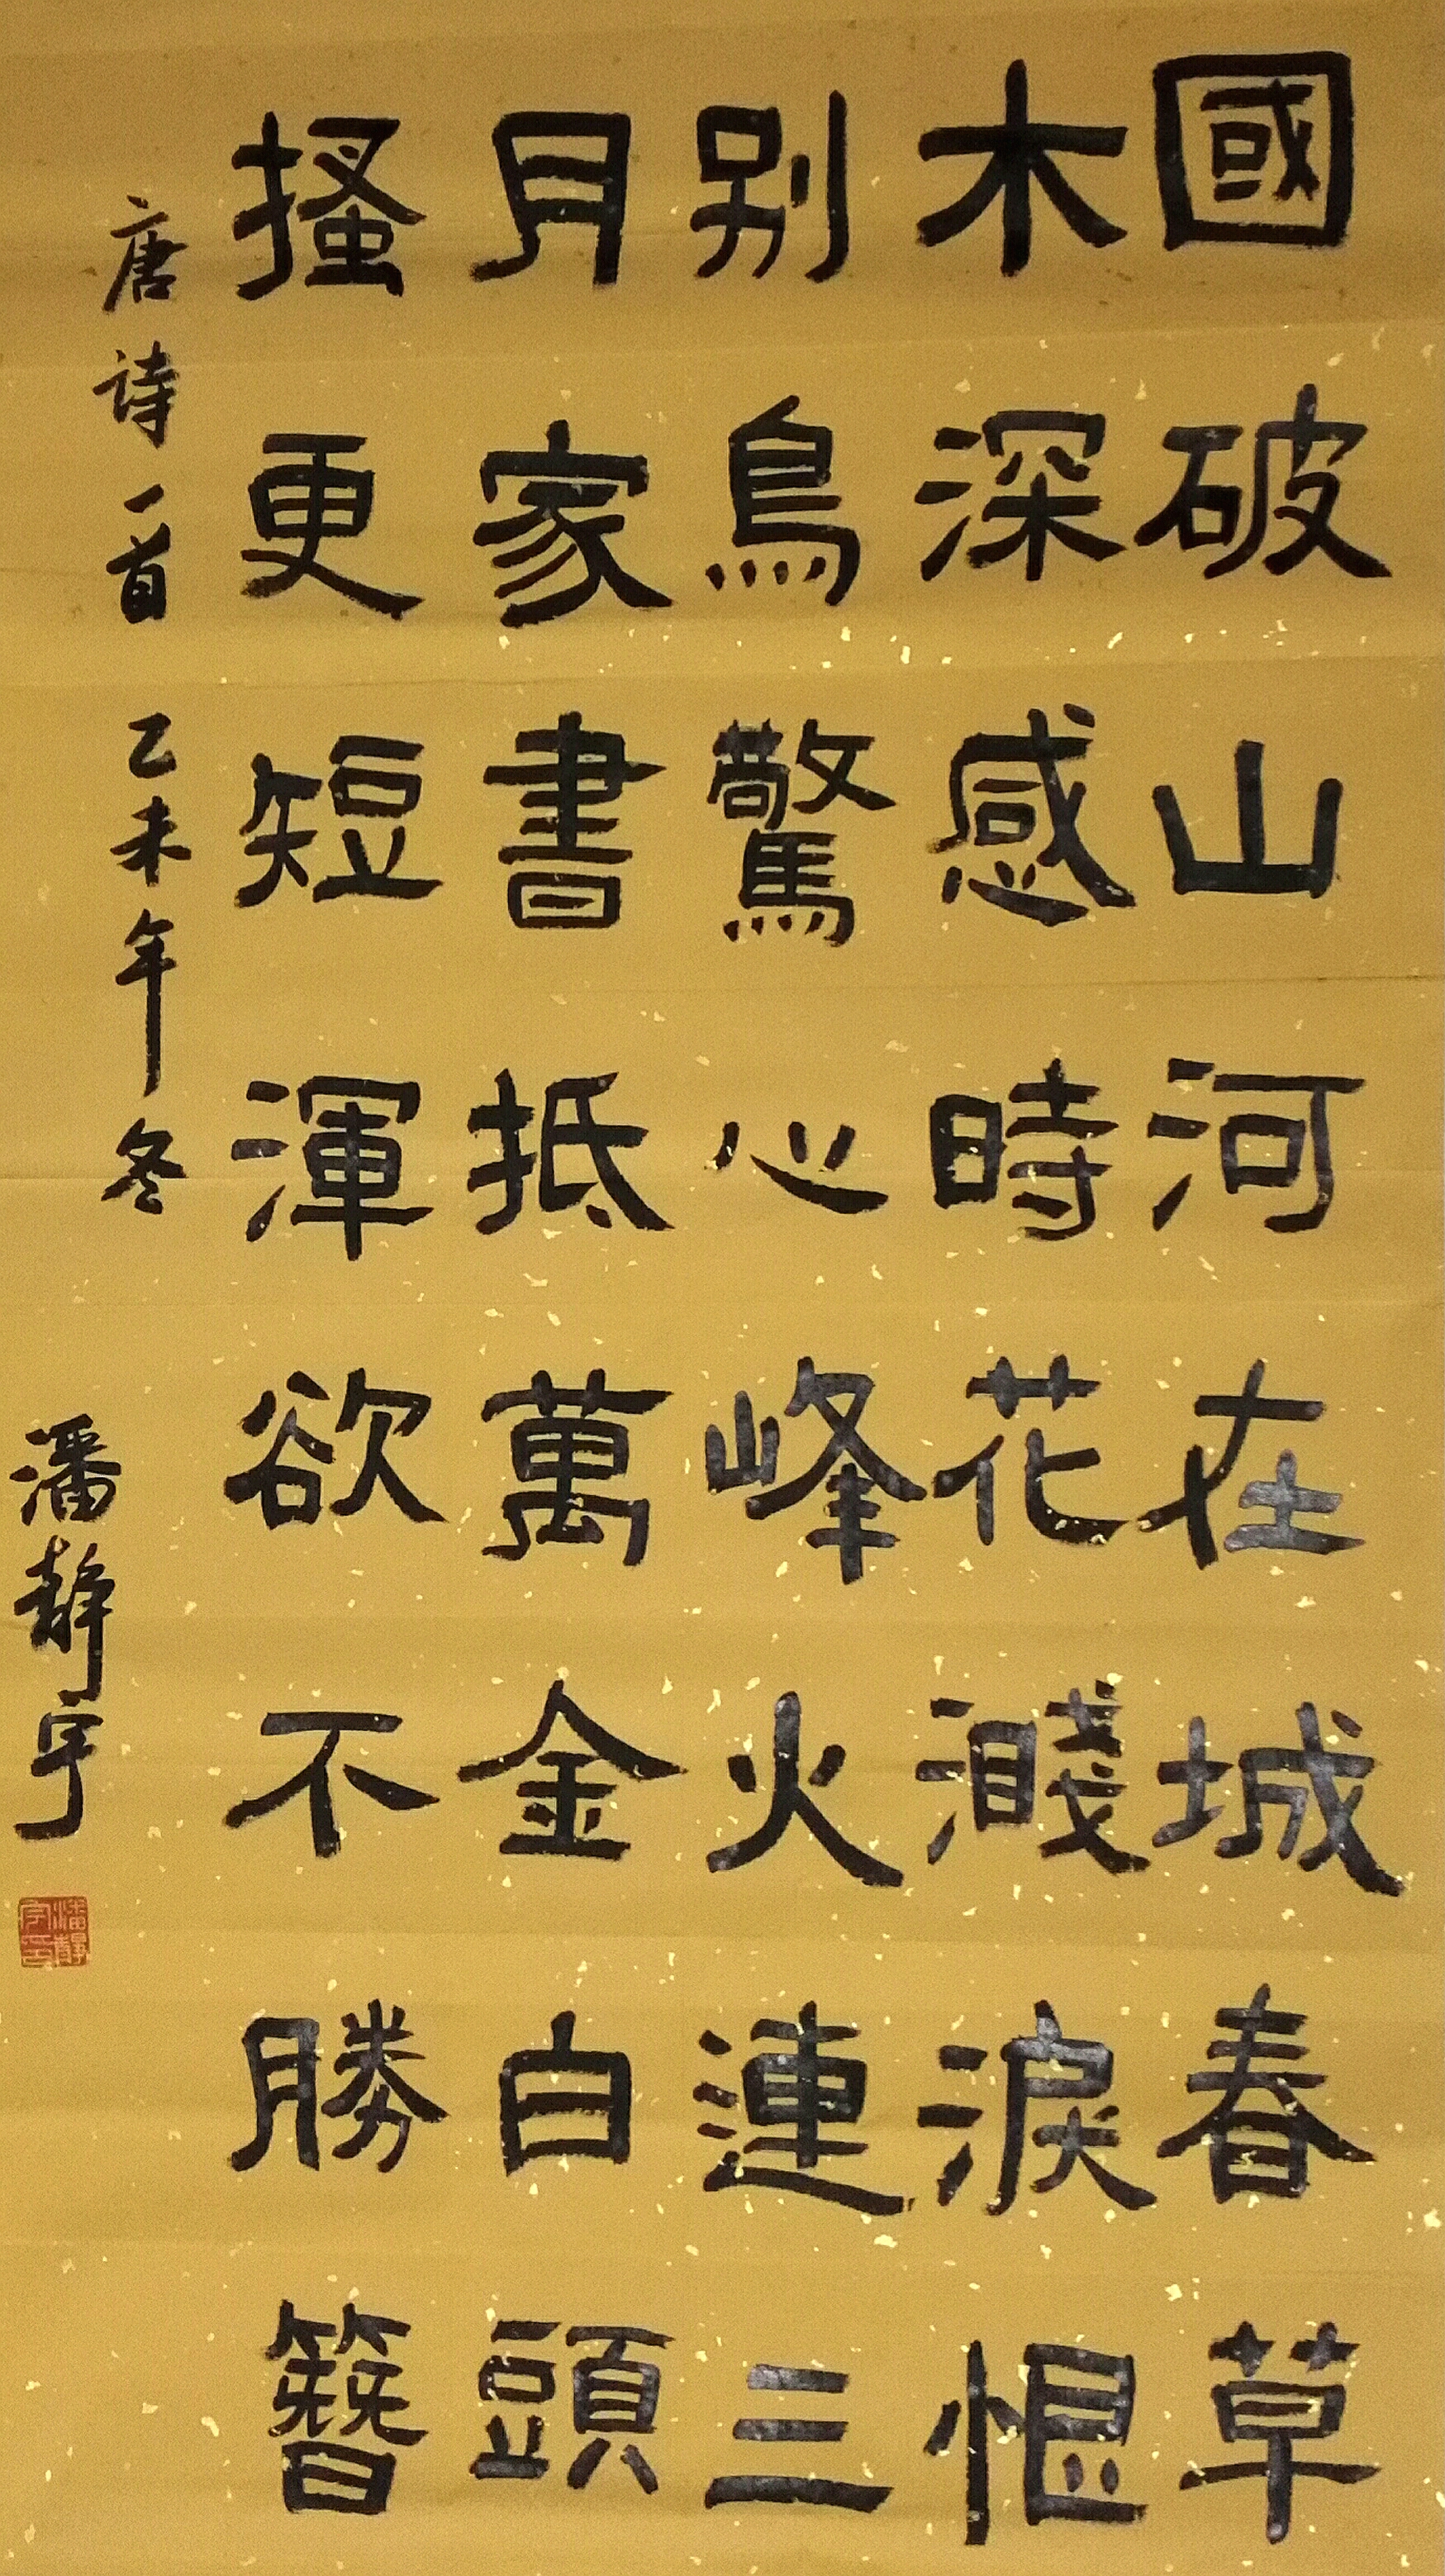 國破山河在城春草
木深感時花濺淚恨
别鳥驚心峰火連三
月家書抵萬金白頭
搔更短渾欲不勝簪
唐诗一首 乙未年冬
潘静宇
潘静宇印